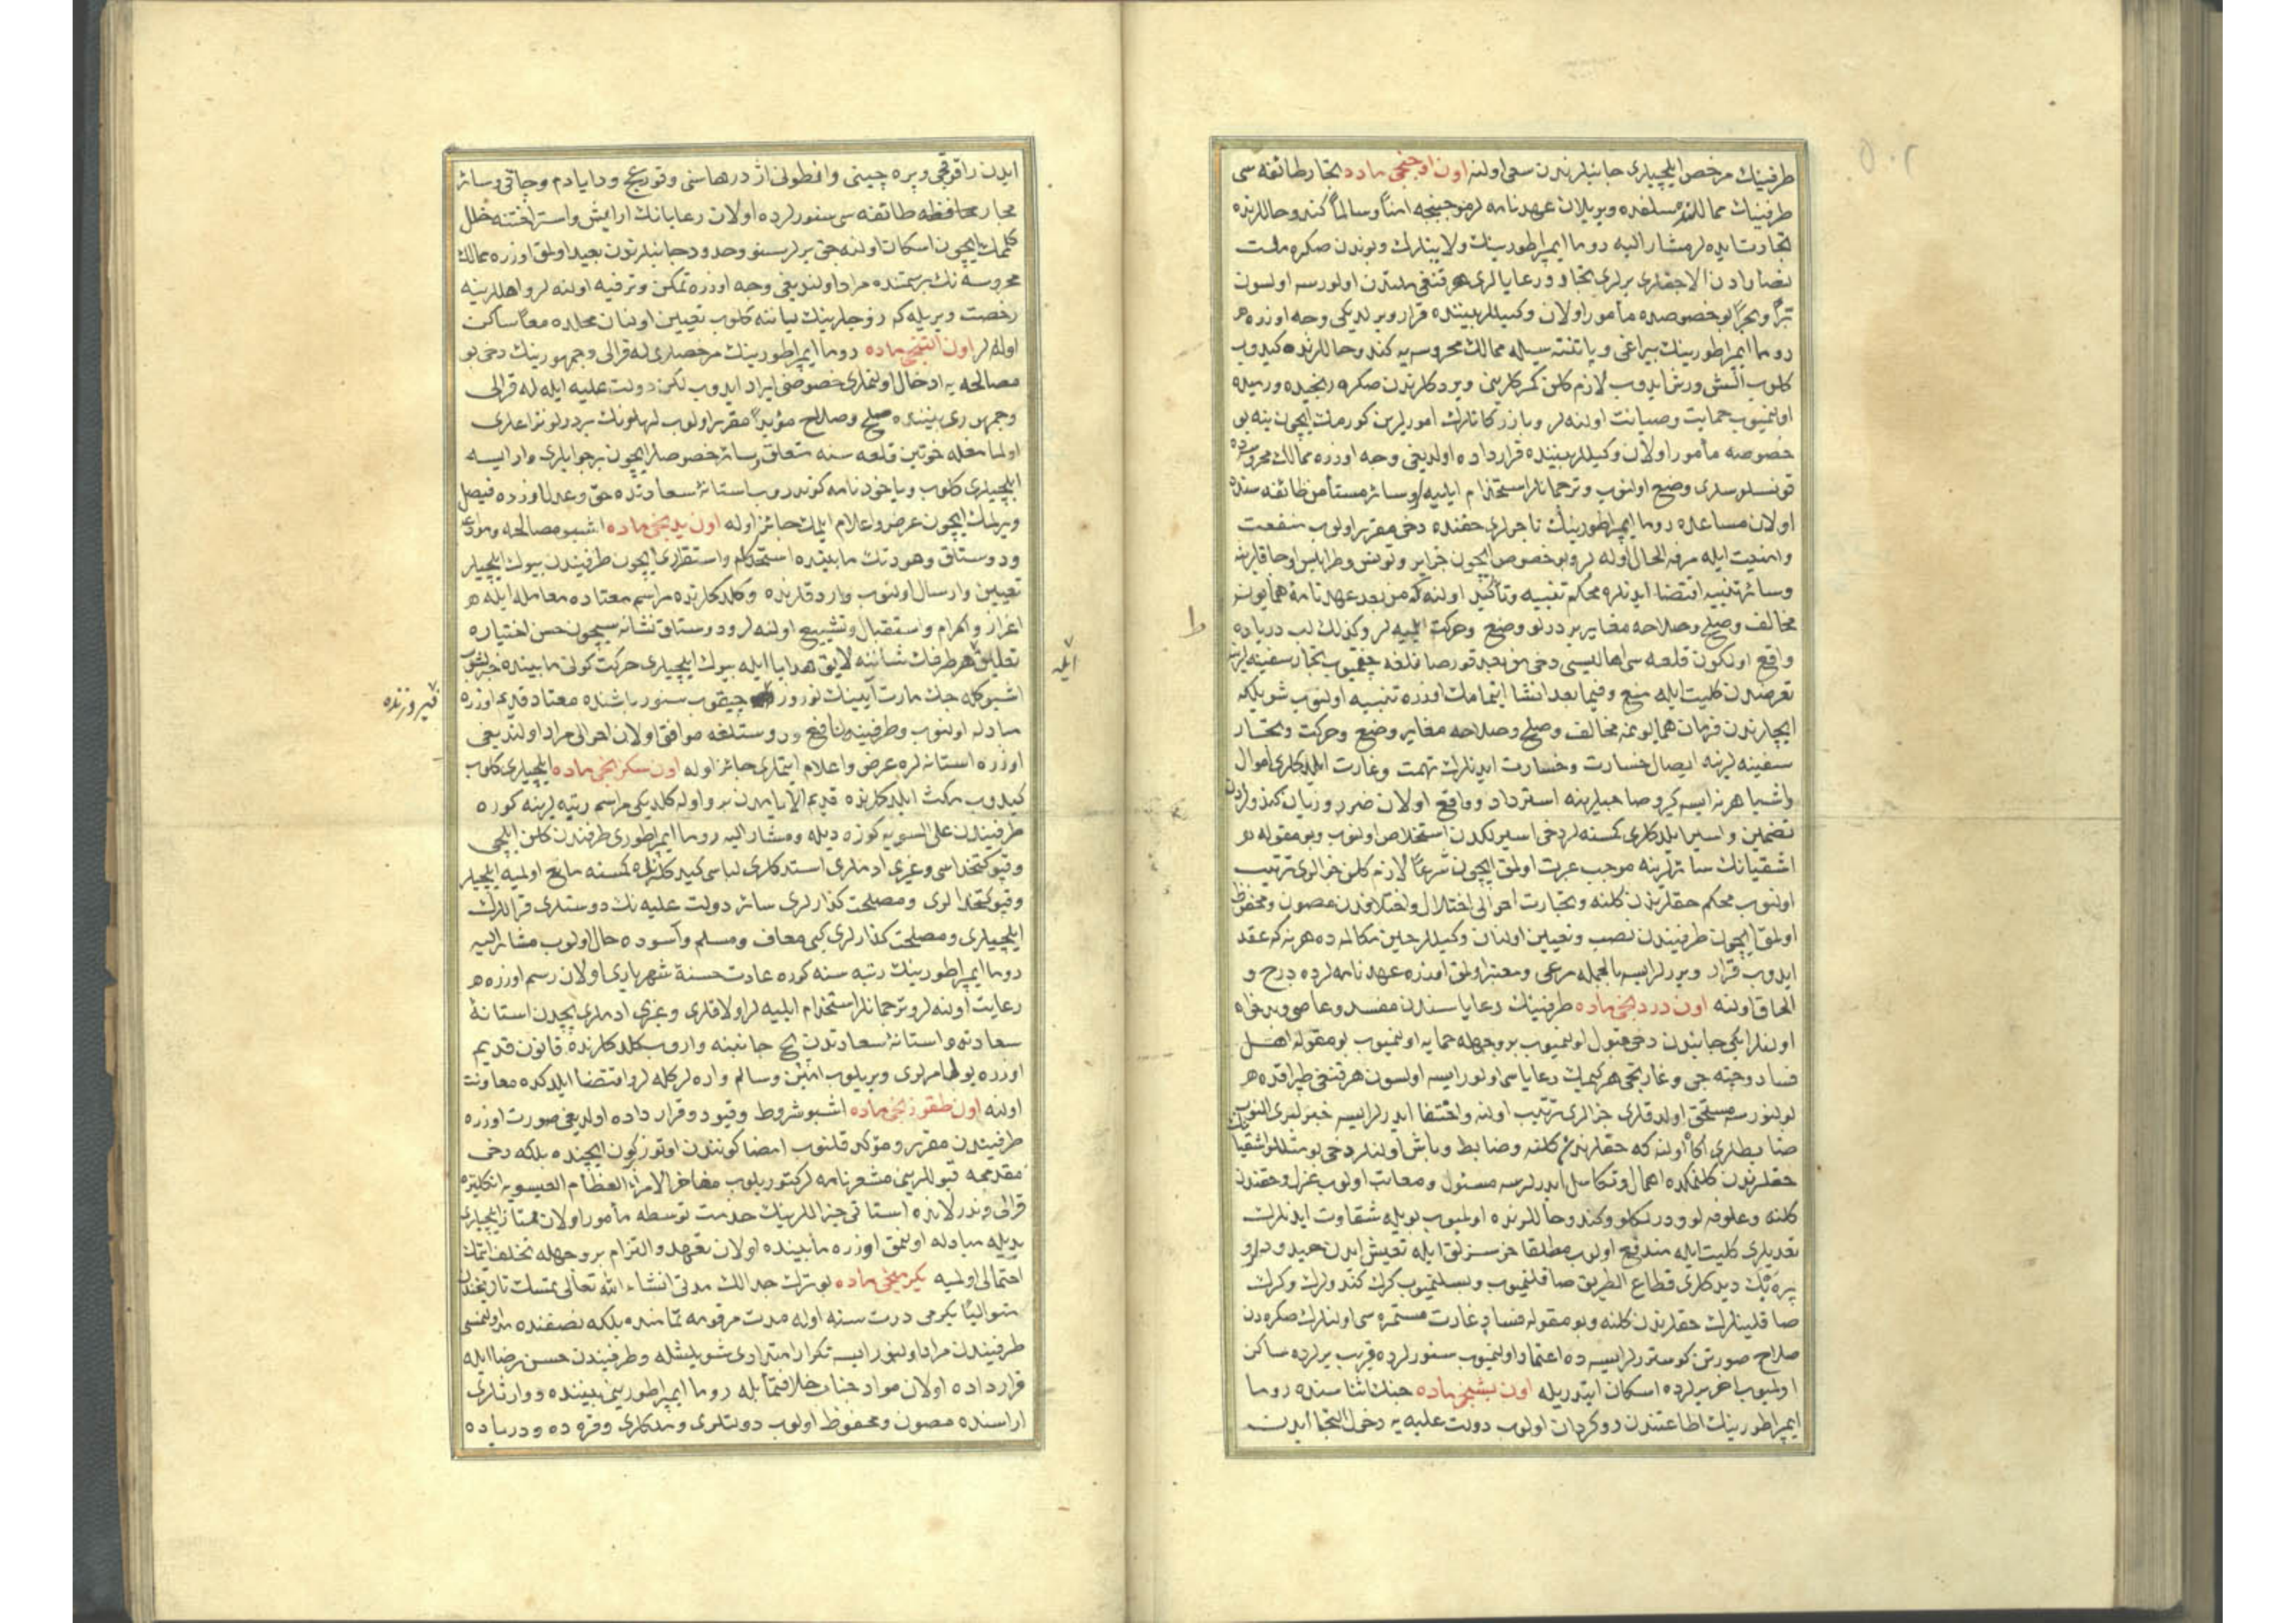 طرفینك مرخص ایلچیلری جانبلرندن سعی اولنه اون اوچنجی ماده تجار طائفه سی
طرفینك ممالكنده مسلفده ویریلان عهدنامه لر موجبنجه امناً وسالماً كندو حاللرنده
تجارت ایده لر مشار الیه روما ایمپراطورینك ولایتلرك وبوندن صكره ملت
نصارادن الاجقلری یرلری تجار ورعایالری هر قنغی ملتدن اولورسه اولسون
براً وبحراً بو خصوصده مأمور اولان وكیللر بیننده قرار ویرلدیكی وجه اوزره
روما ایمپراطورینك بیراغی ویا پتنته سیله ممالك محروسه یه كندو حاللرنده كیدوب
كلوب الش ویرش ایدوب لازم كلن كمركلرینی ویردكلرندن صكره رنجیده ورمیده
اولنمیوب حمایت وصیانت اولنه لر وبازركانلرك امورلرین كورمك ایچون ینه بو
خصوصه مأمور اولان وكیللر بیننده قرارداده اولدیغی وجه اوزره ممالك محروسه ده
قونسلوسلری وضع اولنوب وترجمانلر استخدام ایلیه لر وسائر مستأمن طائفه سنه
اولان مساعده روما ایمپراطورینك تاجرلری حقنده دخی مقرر اولوب منفعت
وامنیت ایله مرفه الحال اوله لر وبو خصوص ایچون جزایر وتونس وطرابلس اوجاقلرینه
وسائر تنبیه اقتضا ایدنلره محكم تنبیه وتأكید اولنه كه من بعد عهدنامهٔ همایونه
مخالف وصلح وصلاحه مغایر بر درلو وضع وحركت ایلمیه لر وكذلك لب دریاده
واقع اولكون قلعه سی اهالیسی دخی من بعد قورصانلغه چیقمیوب تجار سفینه لرینه
تعرضدن كلیت ایله منع وفیما بعد انشا ایتمامك اوزره تنبیه اولنوب شویلكه
ایچلرندن فرمان همایونمه مخالف وصلح وصلاحه مغایر وضع وحركت وتجار
سفینه لرینه ایصال خسارت وخسارت ایدنلرك نهب وغارت ایلدكلری اموال
واشیا هر نه ایسه كیرو صاحبلرینه استرداد وواقع اولان ضرر وزیان كندولردن
تضمین واسیر ایلدكلری كمسنه لر دخی اسیرلكدن استخلاص اولنوب وبو مقوله
اشقیانك سائرلرینه موجب عبرت اولمق ایچون شرعاً لازم كلن جزالری ترتیب
اولنوب محكم حقلرندن كلنه وتجارت احوالی اختلال واختلافدن مصون ومحفوظ
اولمق ایچون طرفیندن نصب وتعیین اولنان وكیللر حین مكالمه ده هر نه كه عقد
ایدوب قرار ویررلر ایسه بالجمله مرعی ومعتبر اولمق اوزره عهدنامه لرده درج و
الحاق اولنه اون دردنجی ماده طرفینك رعایاسندن مفسد وعاصی وبدخواه
اولنلر ایكی جانبدن دخی قبول اولنمیوب بر وجهله حمایه اولنمیوب بو مقوله اهل
فساد وجته جی وغارتجی هر كیمك رعایاسی اولور ایسه اولسون هر قنغی طپراقده
بولنورسه مستحق اولدقلری جزالری ترتیب اولنه واختفا ایدرلر ایسه خبرلری النوب
ضابطلری اكاه اولنه كه حقلرندن كلنه وضابط وباش اولنلر دخی بو مثللو اشقیانك
حقلرندن كلنمكده اهمال وتكاسل ایدرلرسه مسئول ومعاتب اولوب عزل وحقندن
كلنه وعلوفه لو ودرلكلو وكندو حاللرنده اولمیوب بویله شقاوت ایدنلرك
تعدیلری كلیت ایله مندفع اولوب مطلقا خرسزلق ایله تعیش ایدن حیدود لر و
پره بك دیدكلری قطاع الطریق صاقلنمیوب وبسلنمیوب كرك كندولرك وكرك
صاقلیانلرك حقلرندن كلنه وبو مقوله فساد وغارت مستمره سی اولنلرك صكره دن
صلاح صورتن كوستررلر ایسه ده اعتماد اولنمیوب سنورلرده قریب یرلرده ساكن
اولمیوب اخر یرلرده اسكان ایتدریله اون بشنجی ماده جنك اثناسنده روما
ایمپراطورینك اطاعتندن روكردان اولوب دولت علیه یه دخول التجا ایدن
ط
ایدن راقوفچی وبره چینی وانطونی اژدرهاسنی وفورغچ ووایادم وچاقی وسائر
مجار محافظه طائفه سی سنورلرده اولان رعایانك ارایش واستراحتنه خلل
كلمك ایچون اسكان اولنه جق یرلر سنور وحدود جانبلرندن بعید اولمق اوزره ممالك
محروسه نك بر سمتنده مراد اولندیغی وجه اوزره تمكن وترفیه اولنه لر واهللرینه
رخصت ویریله كه زوجلرینك یاننه كلوب تعیین اولنان محلده معاً ساكن
اوله لر اون التنجی ماده روما ایمپراطورینك مرخصلری له قرالی وجمهورینك دخی بو
مصالحه یه ادخال اولنمالری خصوصنی ایراد ایدوب لكن دولت علیه ایله له قرالی
وجمهوری بیننده صلح وصلاح مؤبداً مقرر اولوب لهلونك بر درلو نزاعلری
اولمامغله خوتین قلعه سنه متعلق وسائر خصوصلر ایچون بر جوابلری وار ایسه
ایلچیلری كلوب ویاخود نامه كوندروب استانهٔ سعادتده حق وعدل اوزره فیصل
ویرلمك ایچون عرض واعلام ایلمك جائز اوله اون یدنجی ماده اشبو مصالحه وموادعه
ودوستلق وهودتك مابینده استحكام واستقراری ایچون طرفیندن بیوك ایلچیلر
تعیین وارسال اولنوب واردقلرنده وكلدكلرنده مراسم معتاده معامله ایله
اعزاز واكرام واستقبال وتشییع اولنه لر ودوستلق نشانه سیچون حسن اختیارله
تعلیق هر طرفك شاننه لایق هدایا ایله بیوك ایلچیلری حركت كونی مابینده خبرلشوب
ایله
اشبو كله جك مارت آیینك نوروز چیقوب سنور باشنده معتاد قدیم اوزره
فیروزنده
مبادله اولنوب وطرفینه نافع ودوستلغه موافق اولان احوالی مراد اولندیغی
اوزره استانه لره عرض واعلام ایتملری جائز اوله اون سكزنجی ماده ایلچیلری كلوب
كیدوب مكث ایلدكلرنده قدیم الایامدن برو اوله كلدیكی مراسم رتبه لرینه كوره
طرفیندن علی السویه كوزه دیله ومشار الیه روما ایمپراطوری طرفندن كلن ایلچی
وقپوكتخداسی وغیری ادملری استدكلری لباسی كیدكلرنده كمسنه مانع اولمیه ایلچیلر
وقپوكتخدالری ومصلحت كذارلری سائر دولت علیه نك دوستلری قراللرك
ایلچیلری ومصلحت كذارلری كبی معاف ومسلم وآسوده حال اولوب مشار الیه
روما ایمپراطورینك رتبه سنه كوره عادت حسنهٔ شهریاری اولان رسم اوزره
رعایت اولنه لر وترجمانلر استخدام ایلیه لر اولاقلری وغیری ادملری بچدن استانهٔ
سعادته واستانهٔ سعادتدن بچ جانبنه واروب كلدكلرنده قانون قدیم
اوزره یول امرلری ویریلوب امین وسالم واره لر كله لر واقتضا ایلدكده معاونت
اولنه اون طقوزنجی ماده اشبو شروط وقیود وقرارداده اولدیغی صورت اوزره
طرفیندن مقرر ومؤكد قلنوب امضا كونندن اوتوز كون ایچنده بلكه دخی
مقدمجه قبوللرینی مشعر نامه لر كتوریلوب مفاخر الامراء العظام العیسویه انكلتره
قرالی وندرلانده استاتی جنراللرینك خدمت توسطه مأمور اولان ممتاز ایلچیلری
یدیله مبادله اولنمق اوزره مابینده اولان تعهد والتزام بر وجهله تخلف ایتمك
احتمالی اولمیه یكرمنجی ماده بو ترك جدالك مدتی انشاء الله تعالی تمسك تاریخندن
متوالیاً یكرمی درت سنه اوله مدت مرقومه تمامنده بلكه نصفنده تمدید اولنمسی
طرفیندن مراد اولنور ایسه تكرار امتدادی شویلیله وطرفیندن حسن رضا ایله
قرارداده اولان مواد جناب خلافتمآبله روما ایمپراطورینی بیننده ووارثلری
اراسنده مصون ومحفوظ اولوب دولتلری وملكلری وقره ده ودریاده